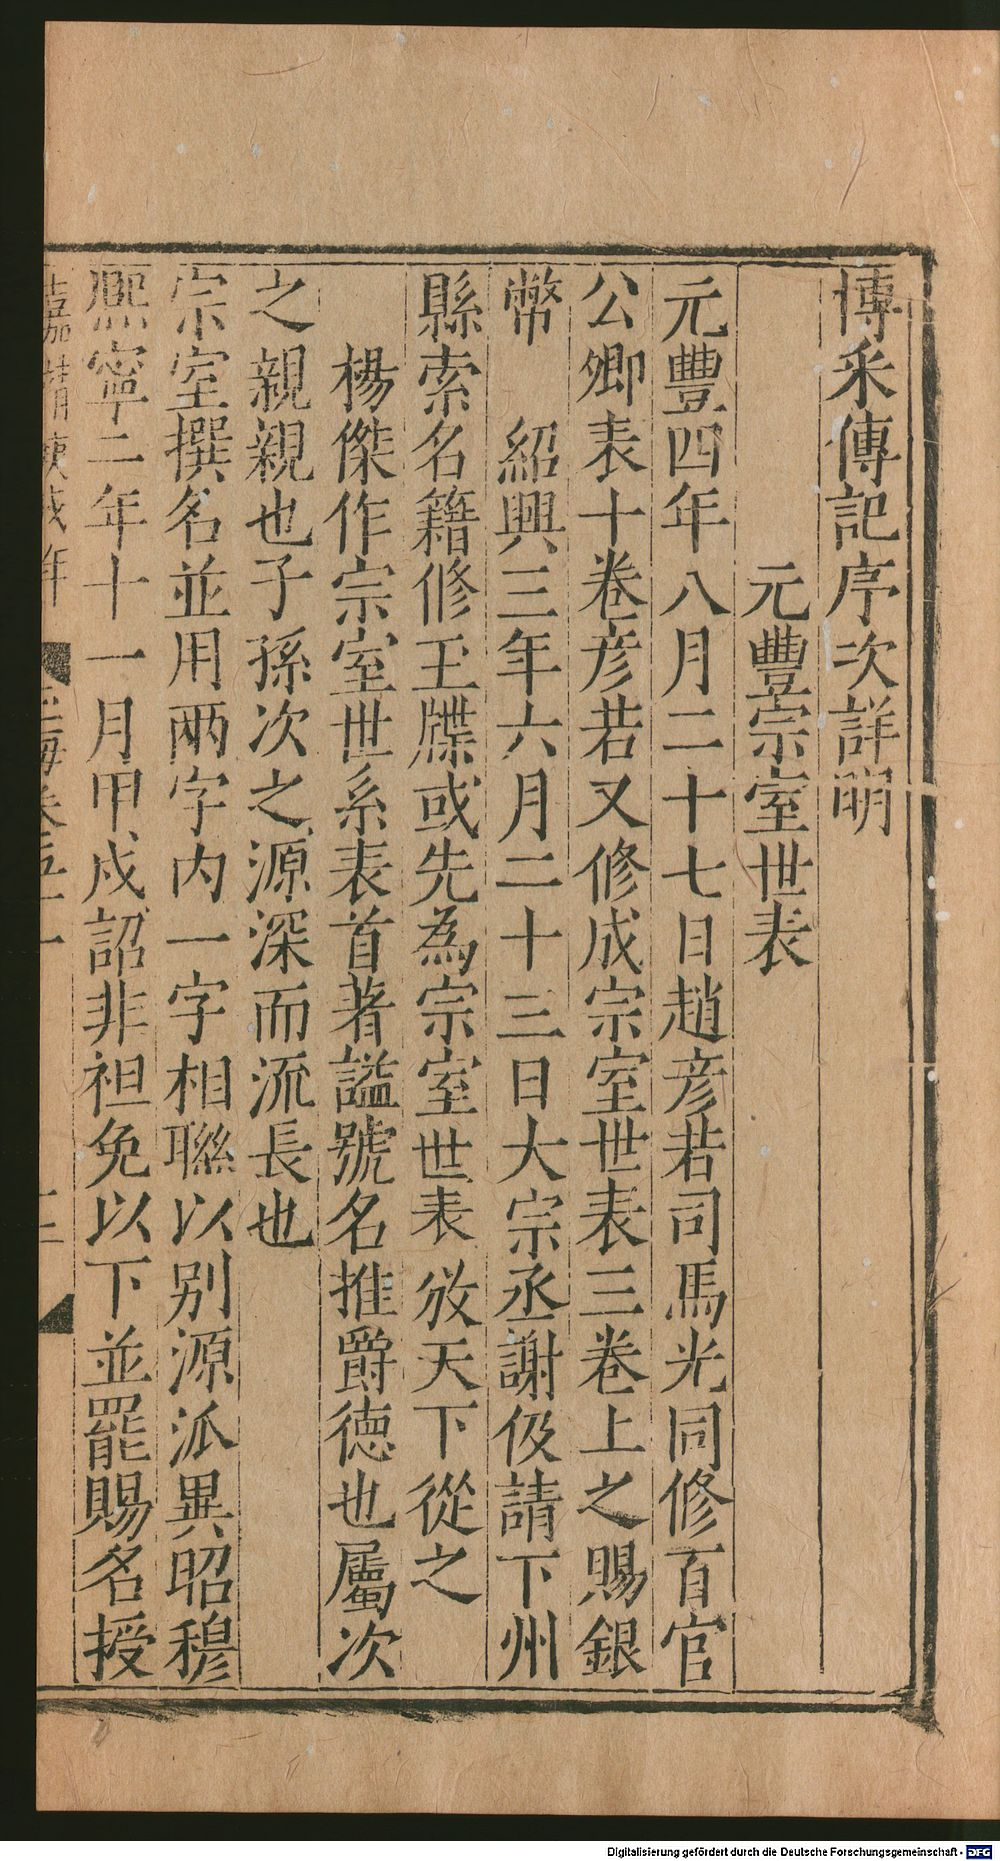 博采傳記序次詳明
元豐宗室世表
元豐四年八月二十七日趙彦若司馬光同修百官
公卿表十卷彦若又修成宗室世表三卷上之賜銀
幣　紹興三年六月二十三日大宗丞謝伋請下州
縣索名籍修玉牒或先為宗室世表放天下從之
楊傑作宗室世系表首著謚號名推爵德也屬次
之親親也子孫次之源深而流長也
宗室撰名並用兩字内一字相聯以别源派異昭穆
熈寧二年十一月甲戍詔非袒免以下並罷賜名授
嘉靖庚戌年
玉海卷五十一
十二
Digitalisierung gefördert durch die Deutsche Forschungsgemeinschaft - DFG